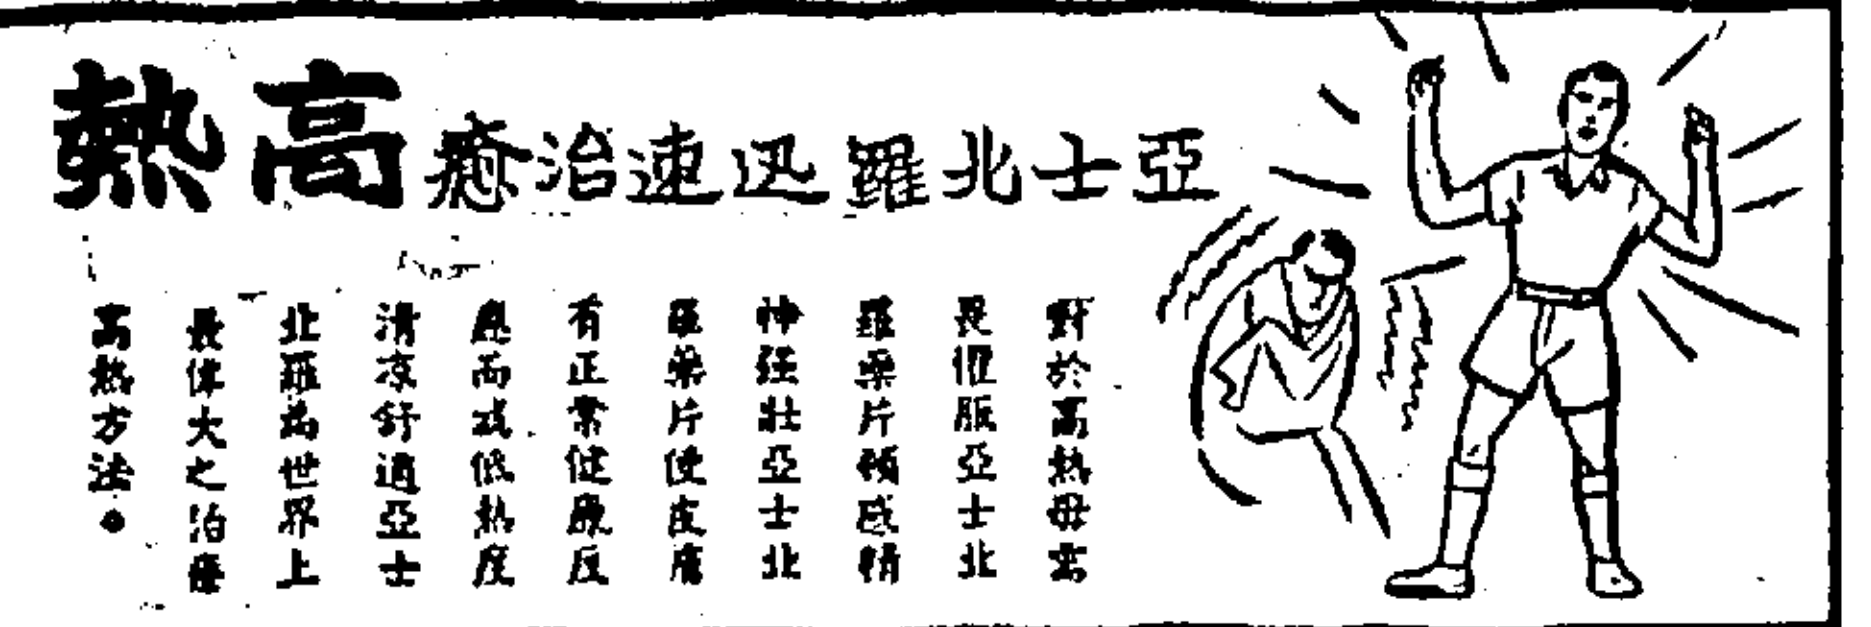 亞士北羅迅速治癒高熱
對於高熱毋需
畏懼服亞士北
羅藥片頓感精
神强壯亞士北
羅藥片使皮膚
有正常健康反
應而減低熱度
清凉舒適亞士
北羅為世界上
最偉大之治療
高熱方法。